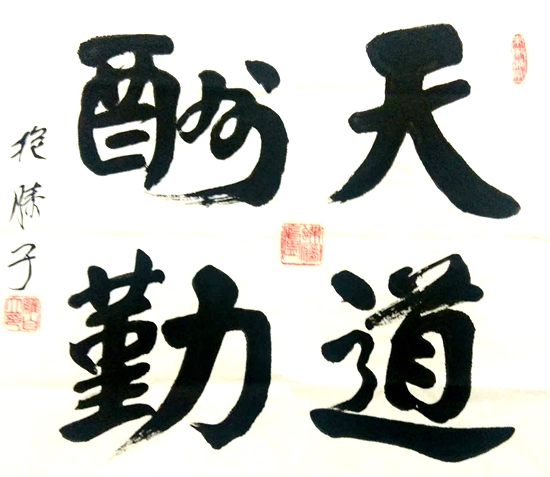 天道
酬勤
抱膝子